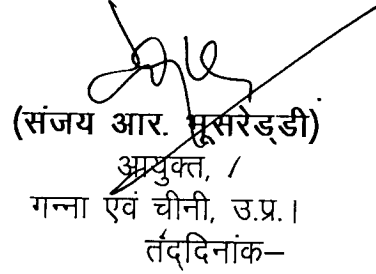 (संजय आर. भूसरेड्डी)
आयुक्त,
गन्ना एवं चीनी, उ.प्र.।
तद्दिनांक–